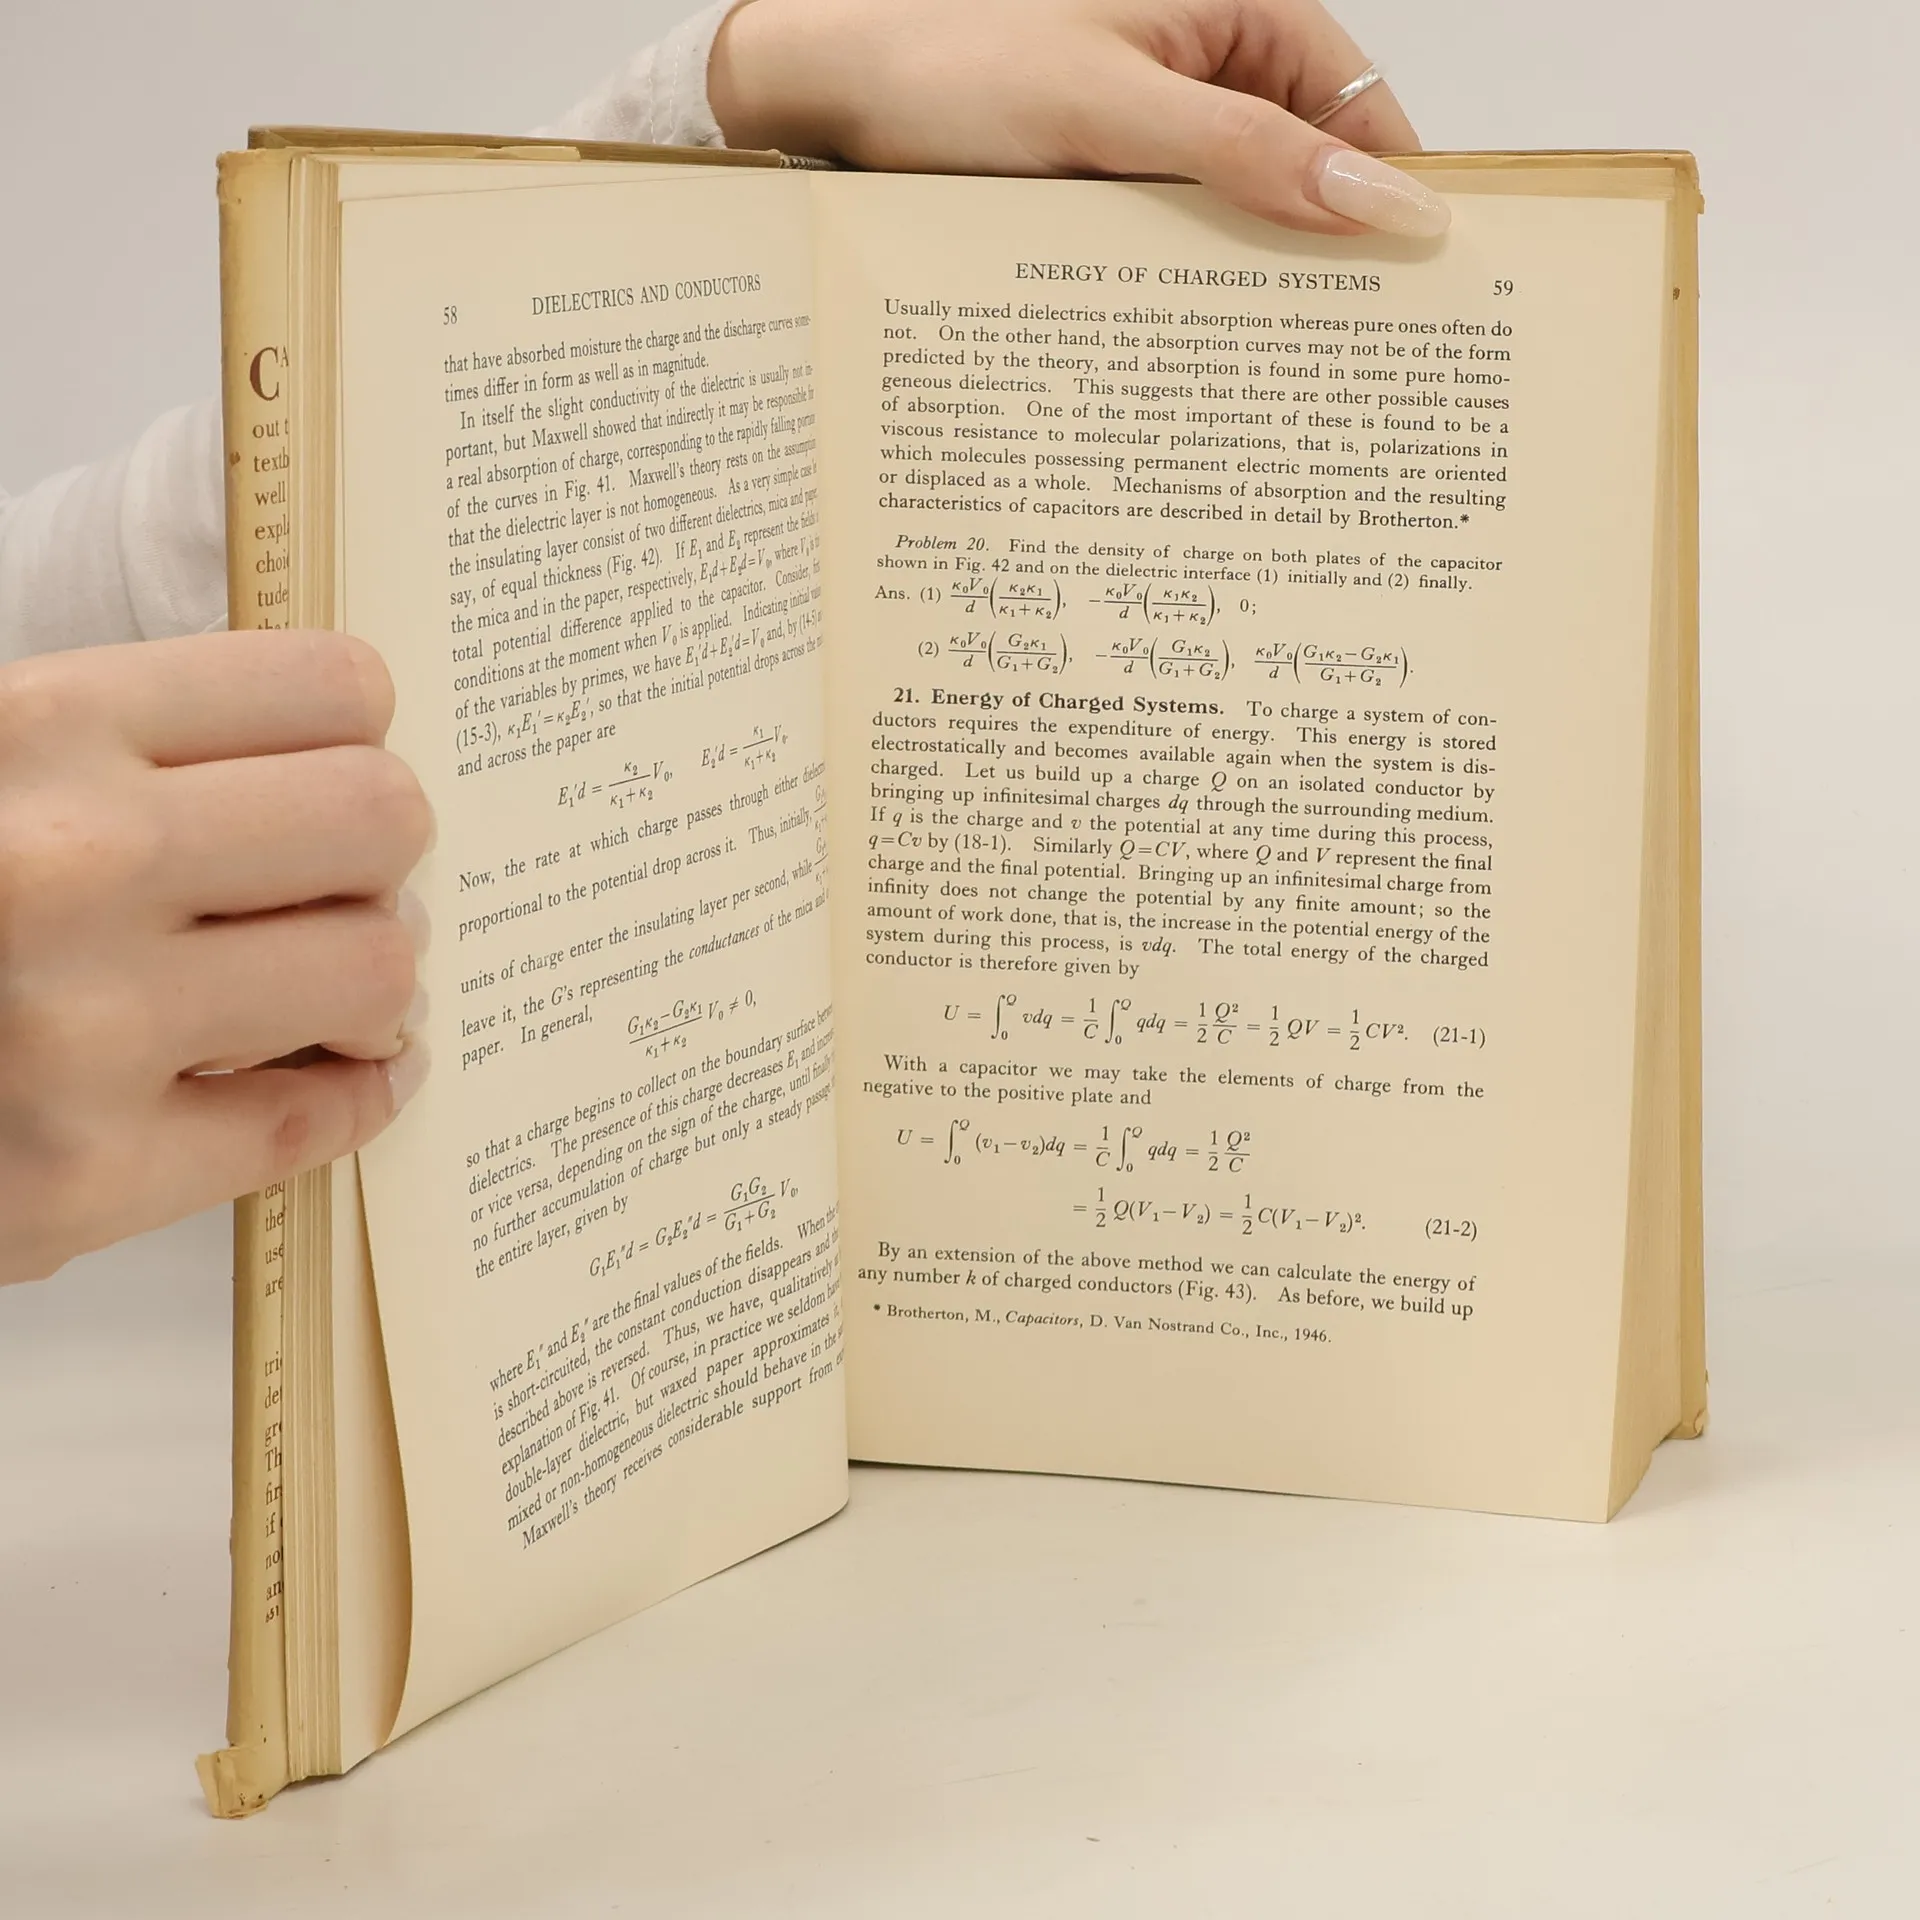 CA
out t
textb
well
expl
choi
tude
the
use
are
tri
det
gre
Th
fir
if
no
an
651
58 DIELECTRICS AND CONDUCTORS
that have absorbed moisture the charge and the discharge curves some-
times differ in form as well as in magnitude.
In itself the slight conductivity of the dielectric is usually not im-
portant, but Maxwell showed that indirectly it may be responsible for
a real absorption of charge, corresponding to the rapidly falling portion
of the curves in Fig. 41. Maxwell's theory rests on the assumption
that the dielectric layer is not homogeneous. As a very simple case let
the insulating layer consist of two different dielectrics, mica and paper,
say, of equal thickness (Fig. 42). If E₁ and E₂ represent the fields
the mica and in the paper, respectively, E₁d+E₂d=V₀, where V₀ is
total potential difference applied to the capacitor. Consider,
conditions at the moment when V₀ is applied. Indicating initial
of the variables by primes, we have E₁'d+E₂'d=V₀ and, by (14-5)
(15-3), κ₁E₁'=κ₂E₂', so that the initial potential drops across the
and across the paper are
E₁'d = κ₂/(κ₁+κ₂) V₀, E₂'d = κ₁/(κ₁+κ₂) V₀.
Now, the rate at which charge passes through either
proportional to the potential drop across it. Thus, initially,
units of charge enter the insulating layer per second, while
leave it, the G's representing the conductances of the mica and
paper. In general,
(G₁κ₂−G₂κ₁)/(κ₁+κ₂) V₀ ≠ 0,
so that a charge begins to collect on the boundary surface
dielectrics. The presence of this charge decreases E₁ and
or vice versa, depending on the sign of the charge, until finally
no further accumulation of charge but only a steady passage
the entire layer, given by
G₁E₁"d = G₂E₂"d = G₁G₂/(G₁+G₂) V₀,
where E₁" and E₂" are the final values of the fields. When the
is short-circuited, the constant conduction disappears and
described above is reversed. Thus, we have, qualitatively
explanation of Fig. 41. Of course, in practice we seldom
double-layer dielectric, but waxed paper approximates it,
mixed or non-homogeneous dielectric should behave in the
Maxwell's theory receives considerable support from
ENERGY OF CHARGED SYSTEMS 59
Usually mixed dielectrics exhibit absorption whereas pure ones often do
not. On the other hand, the absorption curves may not be of the form
predicted by the theory, and absorption is found in some pure homo-
geneous dielectrics. This suggests that there are other possible causes
of absorption. One of the most important of these is found to be a
viscous resistance to molecular polarizations, that is, polarizations in
which molecules possessing permanent electric moments are oriented
or displaced as a whole. Mechanisms of absorption and the resulting
characteristics of capacitors are described in detail by Brotherton.*
Problem 20. Find the density of charge on both plates of the capacitor
shown in Fig. 42 and on the dielectric interface (1) initially and (2) finally.
Ans. (1) κ₀V₀/d (κ₂κ₁/(κ₁+κ₂)), −κ₀V₀/d (κ₁κ₂/(κ₁+κ₂)), 0;
(2) κ₀V₀/d (G₂κ₁/(G₁+G₂)), −κ₀V₀/d (G₁κ₂/(G₁+G₂)), κ₀V₀/d ((G₁κ₂−G₂κ₁)/(G₁+G₂)).
21. Energy of Charged Systems. To charge a system of con-
ductors requires the expenditure of energy. This energy is stored
electrostatically and becomes available again when the system is dis-
charged. Let us build up a charge Q on an isolated conductor by
bringing up infinitesimal charges dq through the surrounding medium.
If q is the charge and v the potential at any time during this process,
q=Cv by (18-1). Similarly Q=CV, where Q and V represent the final
charge and the final potential. Bringing up an infinitesimal charge from
infinity does not change the potential by any finite amount; so the
amount of work done, that is, the increase in the potential energy of the
system during this process, is vdq. The total energy of the charged
conductor is therefore given by
U = ∫₀^Q vdq = 1/C ∫₀^Q qdq = 1/2 Q²/C = 1/2 QV = 1/2 CV². (21-1)
With a capacitor we may take the elements of charge from the
negative to the positive plate and
U = ∫₀^Q (v₁−v₂)dq = 1/C ∫₀^Q qdq = 1/2 Q²/C
= 1/2 Q(V₁−V₂) = 1/2 C(V₁−V₂)². (21-2)
By an extension of the above method we can calculate the energy of
any number k of charged conductors (Fig. 43). As before, we build up
* Brotherton, M., Capacitors, D. Van Nostrand Co., Inc., 1946.